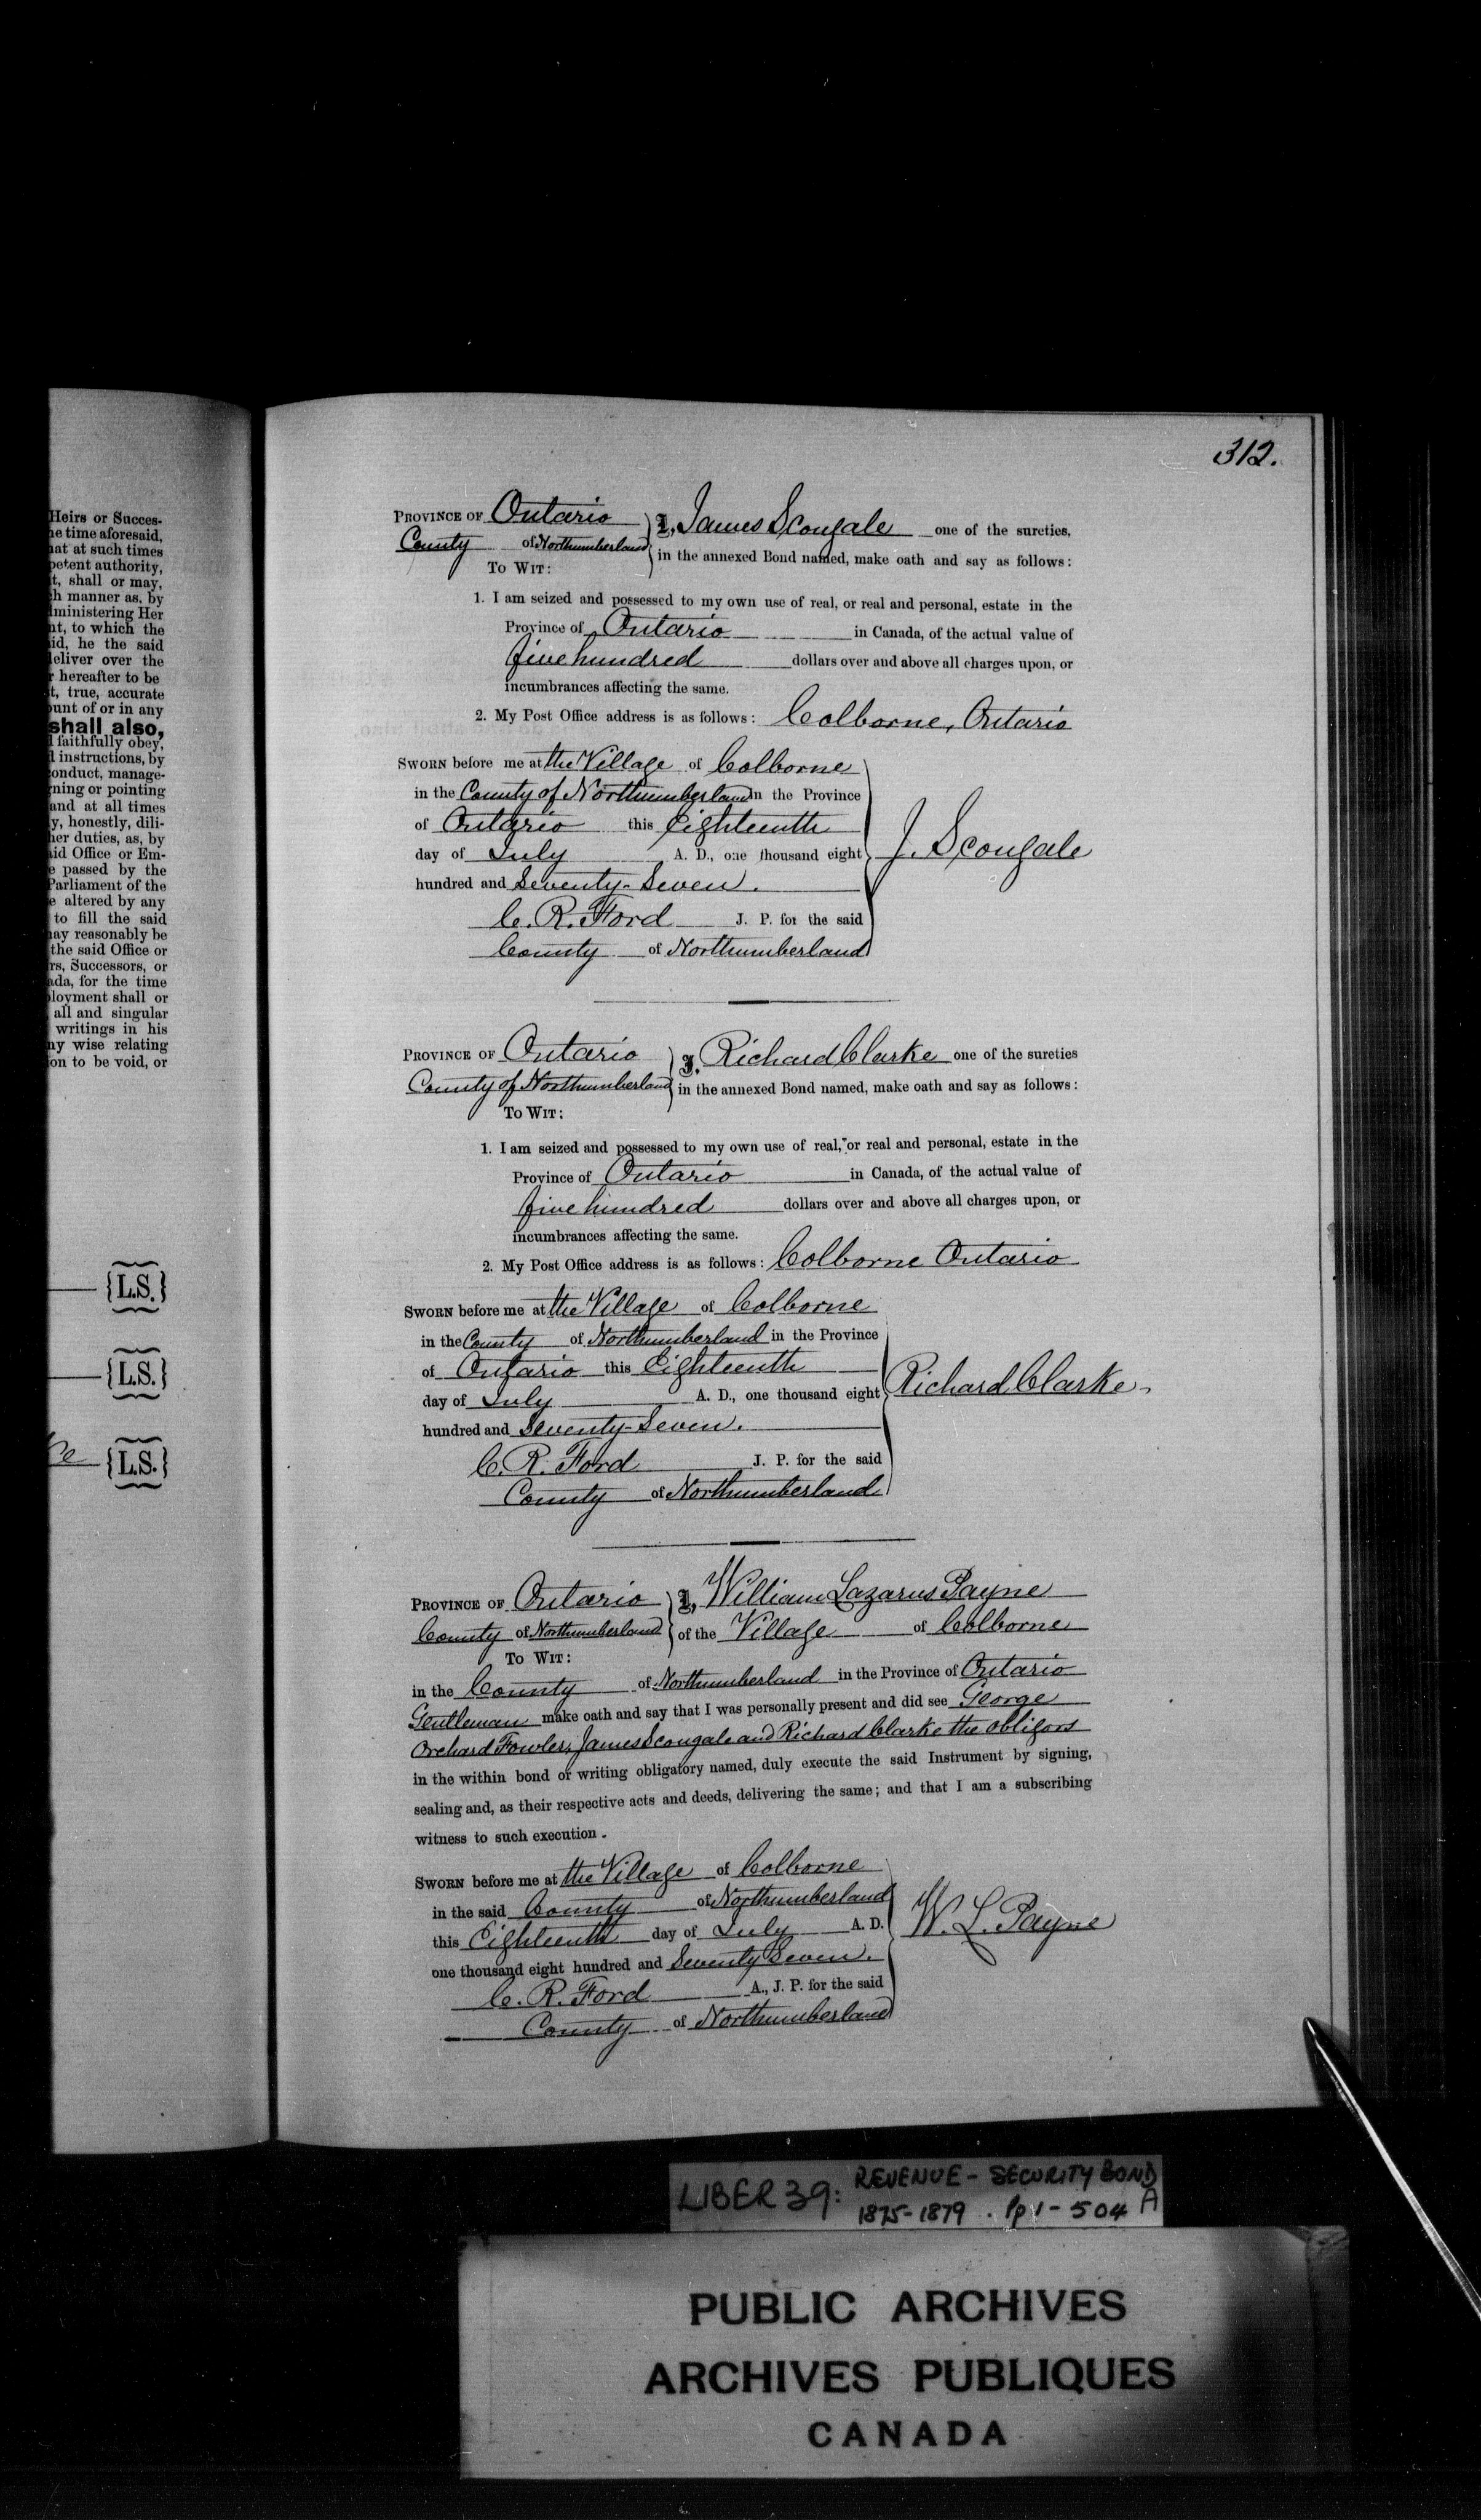 Heirs or Succes-
he time aforesaid,
hat at such times
petent authority,
t, shall or may,
h manner as, by
lministering Her
nt, to which the
id, he the said
leliver over the
r hereafter to be
t, true, accurate
ount of or in any
shall also,
l faithfully obey,
l instructions, by
onduct, manage-
ning or pointing
and at all times
y, honestly, dili-
her duties, as, by
aid Office or Em-
e passed by the
Parliament of the
e altered by any
to fill the said
nay reasonably be
the said Office or
rs, Successors, or
ada, for the time
ployment shall or
all and singular
writings in his
ny wise relating
on to be void, or
{L.S.}
{L.S.}
{L.S.}
312.
PROVINCE OF Ontario } I, James Scougale one of the sureties,
County of Northumberland in the annexed Bond named, make oath and say as follows:
TO WIT:
1. I am seized and possessed to my own use of real, or real and personal, estate in the
Province of Ontario in Canada, of the actual value of
five hundred dollars over and above all charges upon, or
incumbrances affecting the same.
2. My Post Office address is as follows: Colborne, Ontario
SWORN before me at the Village of Colborne
in the County of Northumberland in the Province
of Ontario this Eighteenth
day of July A. D., one thousand eight
J. Scougale
hundred and Seventy-Seven.
C. R. Ford J. P. for the said
County of Northumberland
PROVINCE OF Ontario } I, Richard Clarke one of the sureties
County of Northumberland in the annexed Bond named, make oath and say as follows:
TO WIT:
1. I am seized and possessed to my own use of real, or real and personal, estate in the
Province of Ontario in Canada, of the actual value of
five hundred dollars over and above all charges upon, or
incumbrances affecting the same.
2. My Post Office address is as follows: Colborne Ontario
SWORN before me at the Village of Colborne
in the County of Northumberland in the Province
of Ontario this Eighteenth
day of July A. D., one thousand eight
Richard Clarke
hundred and Seventy-Seven.
C. R. Ford J. P. for the said
County of Northumberland
PROVINCE OF Ontario } I, William Lazarus Payne
County of Northumberland of the Village of Colborne
TO WIT:
in the County of Northumberland in the Province of Ontario
Gentleman make oath and say that I was personally present and did see George
Orchard Fowler, James Scougale and Richard Clarke the obligors
in the within bond or writing obligatory named, duly execute the said Instrument by signing,
sealing and, as their respective acts and deeds, delivering the same; and that I am a subscribing
witness to such execution.
SWORN before me at the Village of Colborne
in the said County of Northumberland
this Eighteenth day of July A. D.
W. L. Payne
one thousand eight hundred and Seventy Seven.
C. R. Ford A., J. P. for the said
County of Northumberland
LIBER 39: REVENUE - SECURITY BOND
1875-1879 . Pp 1 - 504 A
PUBLIC ARCHIVES
ARCHIVES PUBLIQUES
CANADA